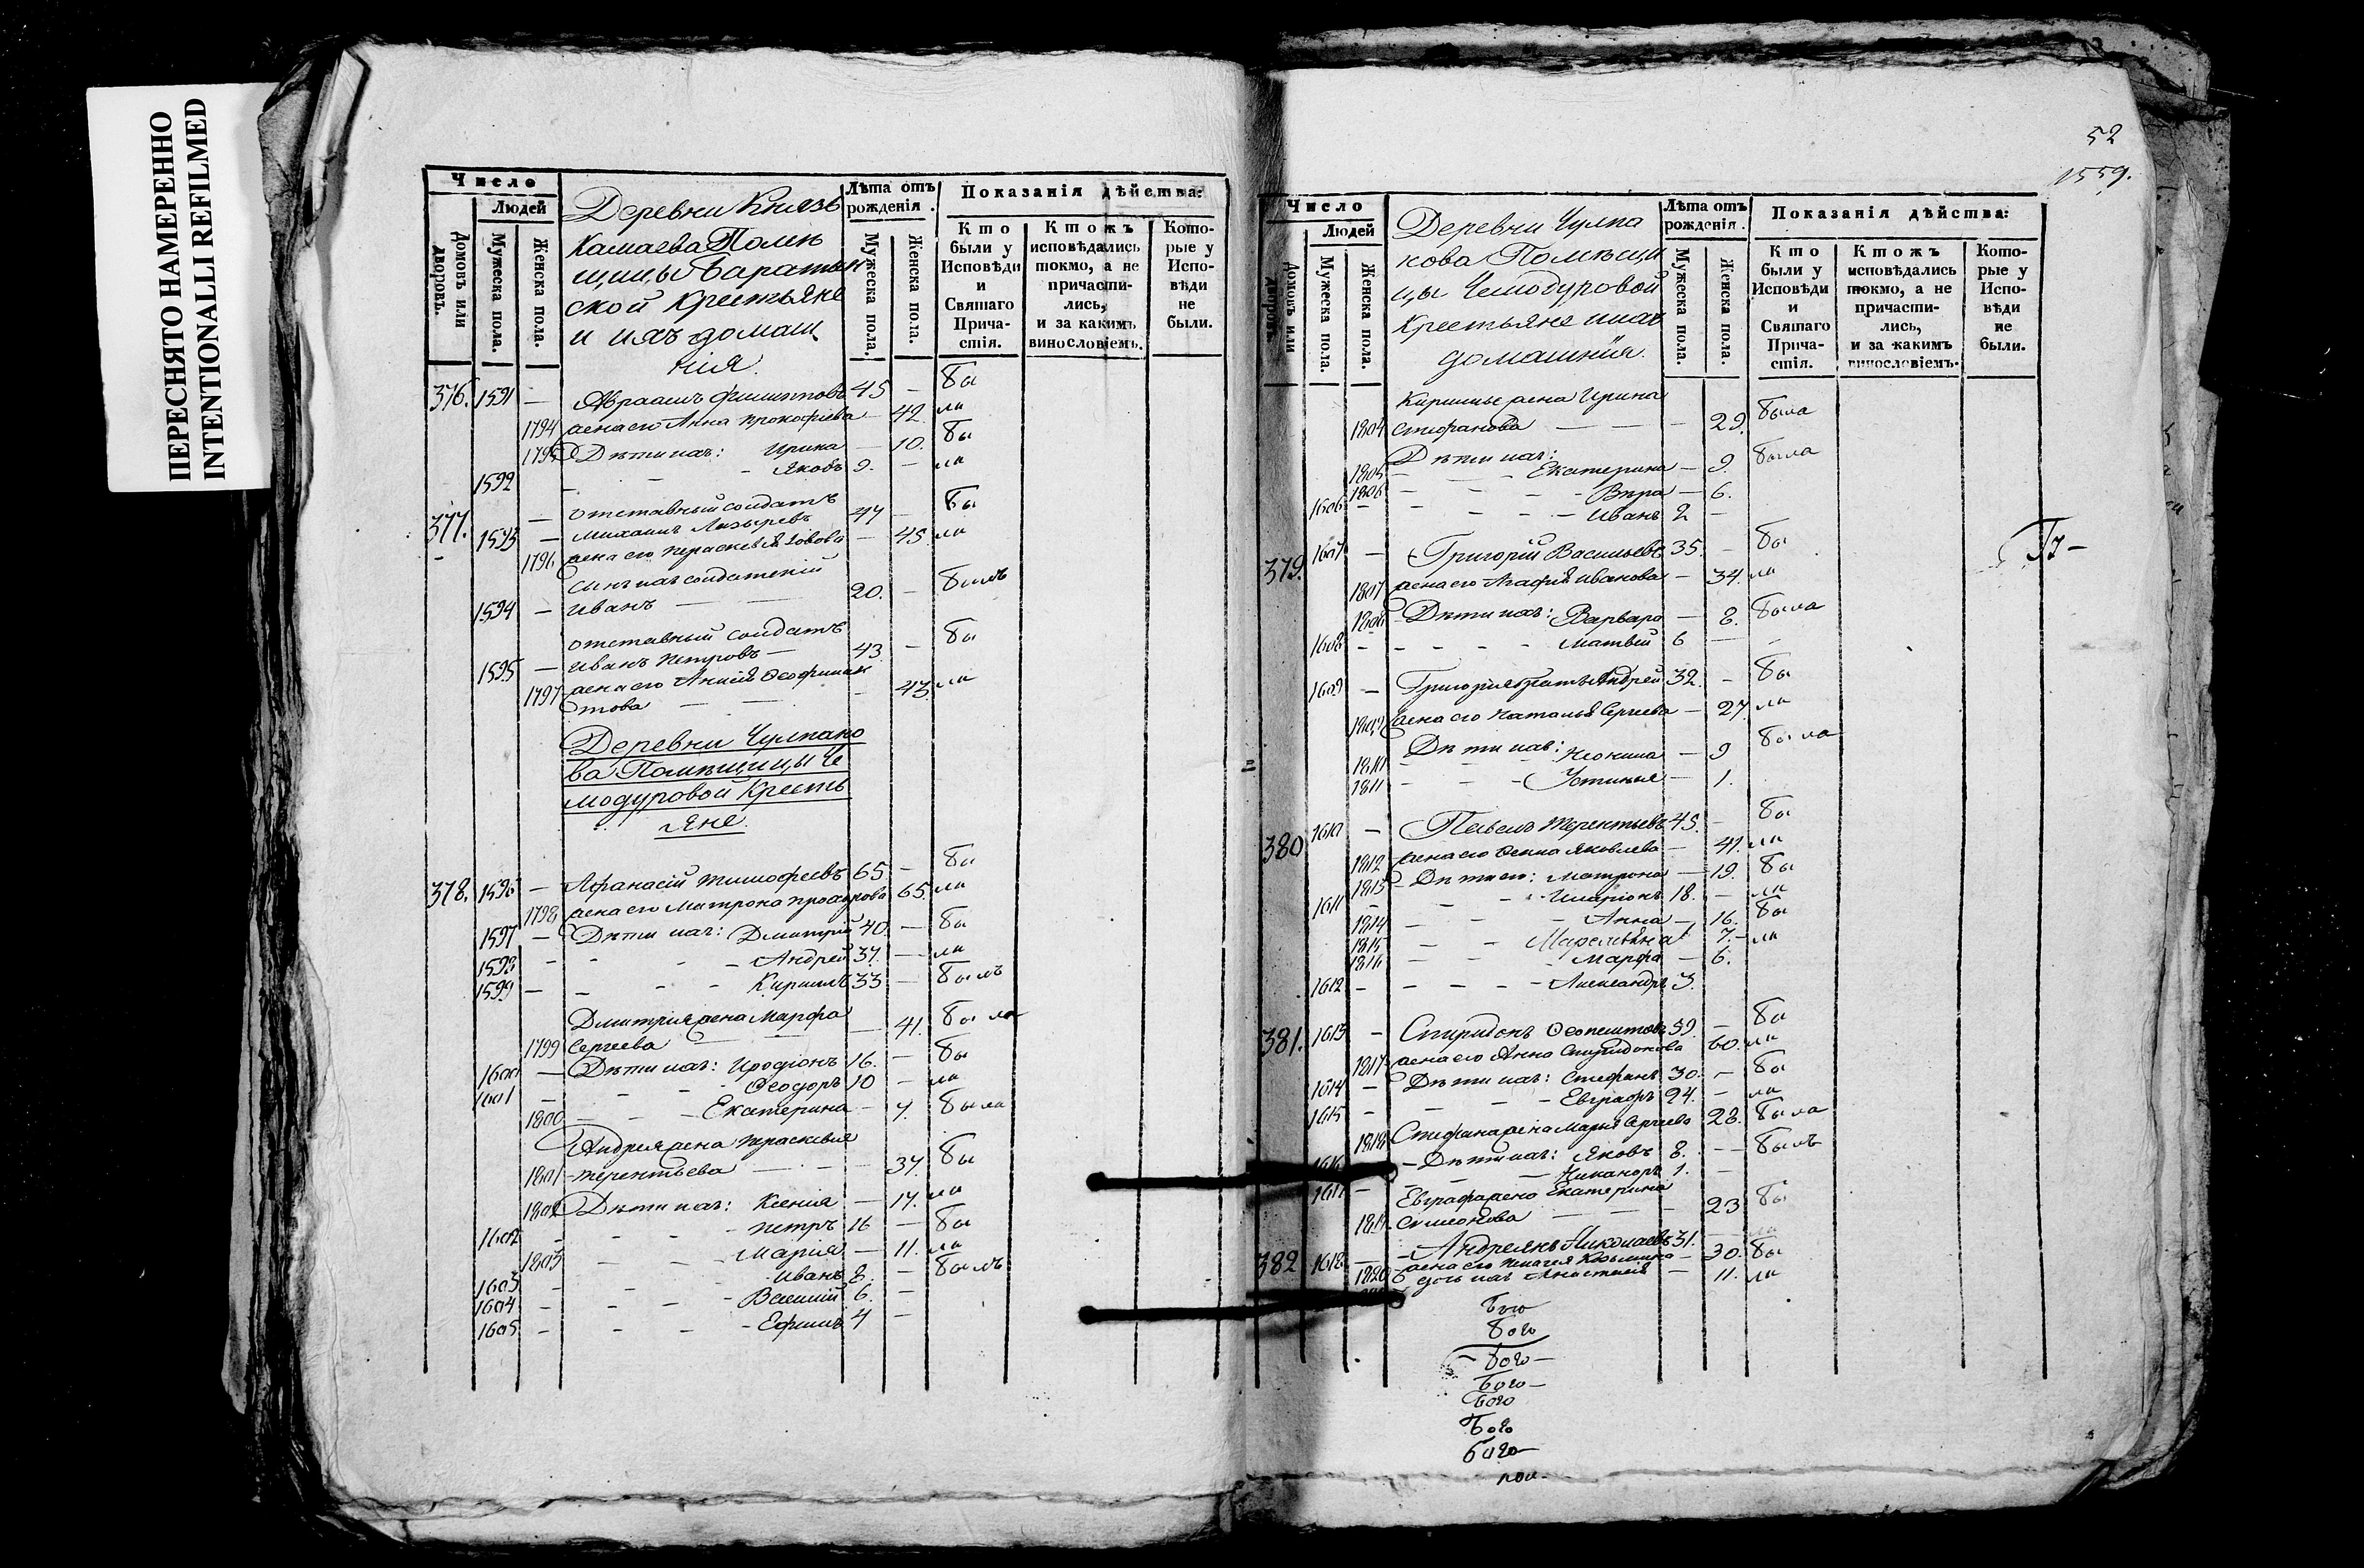 ПЕРЕСНЯТО НАМЕРЕННО
INTENTIONALLI REFILMED
Число
Людей
Домовъ или дворовъ.
Мужеска пола.
Женска пола.
Деревни Князь
Камаева Помѣ
щицы Баратын
ской крестьяне
и ихъ домаш
нія.
Лѣта отъ рожденія.
Мужеска пола.
Женска пола.
Показанія дѣйства:
Кто были у Исповѣди и Святаго Причастія.
Ктожъ исповѣдались токмо, а не причастились, и за какимъ винословіемъ.
Которые у Исповѣди не были.
376. 1591 — Авраамъ Филиповъ 45 — бы
1794 жена его Анна Прокофіева — 42. ли
1795 Дѣти ихъ: Ирина — 10. бы
1592 — Яковъ 9. — ли
отставный солдатъ
377. 1593 — Михаилъ 47 — бы
1796 жена его Параскевія — 45 ли
сынъ ихъ солдатскій
1594 — Иванъ — 20. — былъ
отставный солдатъ
1595 — Иванъ Петровъ — 43 — бы
1797 жена его
това — 43 ли
Деревни Чулпано
ва Помѣщицы Че
модуровой Кресть
яне.
378. 1596 — Афанасій Тимофеевъ 65 — бы
1798 жена его Матрона 65. ли
1597 — Дѣти ихъ: Дмитрій 40. — бы
1598 — Андрей 37. — ли
1599 — Кирилъ 33 — былъ
Дмитрія жена Марфа
1799 Сергеева — 41. была
1600 — Дѣти ихъ: Иродіонъ 16. — бы
1601 — Феодоръ 10 — ли
1800 — Екатерина — 7. была
Андрея жена Праскевья
1801 Терентьева — 37. бы
1802 Дѣти ихъ: Ксенія — 17. ли
1602 — Петръ 16 — бы
1803 — Марія — 11. ли
1603 — Иванъ 8. — былъ
1604 — Василій 6. —
1605 — Ефимъ 4 —
52
1559.
Число
Людей
Домовъ или дворовъ.
Мужеска пола.
Женска пола.
Деревни Чулпа
нова Помѣщи
цы Чемодуровой
Крестьяне и ихъ
домашнія.
Лѣта отъ рожденія.
Мужеска пола.
Женска пола.
Показанія дѣйства:
Кто были у Исповѣди и Святаго Причастія.
Ктожъ исповѣдались токмо, а не причастились, и за какимъ винословіемъ.
Которые у Исповѣди не были.
жена Ирина
1804 Стефанова — 29. была
Дѣти ихъ:
1805 — Екатерина — 9. была
1806 — Вѣра — 6.
1606 — Иванъ 2 —
379. 1607 — Григорій Васильевъ 35. — бы
1807 жена его Агафія Иванова — 34. ли
1808 Дѣти ихъ: Варвара — 8. была
1608 — Матвѣй 6 —
1609 — Григорія братъ Андрей 32. — бы
1809 жена его Наталья Сергеева — 27. ли
Дѣти ихъ:
1810 — Неонила — 9 была
1811 — Устинья — 1.
380 1610 — Павелъ Терентьевъ 45. — бы
1812 жена его Яковлева — 47. ли
1813 Дѣти его: Матрона — 19. бы
1611 — Иларіонъ 18. — ли
1814 — Анна — 16. бы
1815 — 7. — ли
1816 — Марфа — 6.
1612 — Александръ 3.
381. 1613 — Спиридонъ 59. — бы
1817 жена его Анна Спиридонова 60. ли
1614 — Дѣти ихъ: Стефанъ 30. — бы
1615 — Евграфъ 24. — ли
1818 Стефана жена Марья Сергеева 28. была
1616 — Дѣти ихъ: Яковъ 8. — былъ
1617 — Никаноръ 1. —
Евграфа жена Екатерина
1819 Симеонова — 23 бы
382 1618 — Андреянъ Николаевъ 31. — ли
1820 жена его Пелагея Козьмина — 30. бы
дочь ихъ Анастасія — 11. ли